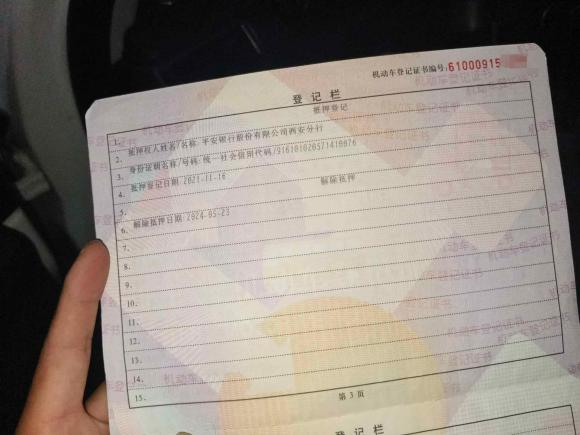 机动车登记证书编号:61000915
登记栏
抵押登记
1.
2. 抵押权人姓名/名称:平安银行股份有限公司西安分行
3. 身份证明名称/号码:统一社会信用代码/916101020571410076
4. 抵押登记日期:2021-11-16
5. 解除抵押
6. 解除抵押日期:2024-05-23
7.
8.
9.
10.
11.
12.
13.
14.
15.
第3页
登记栏